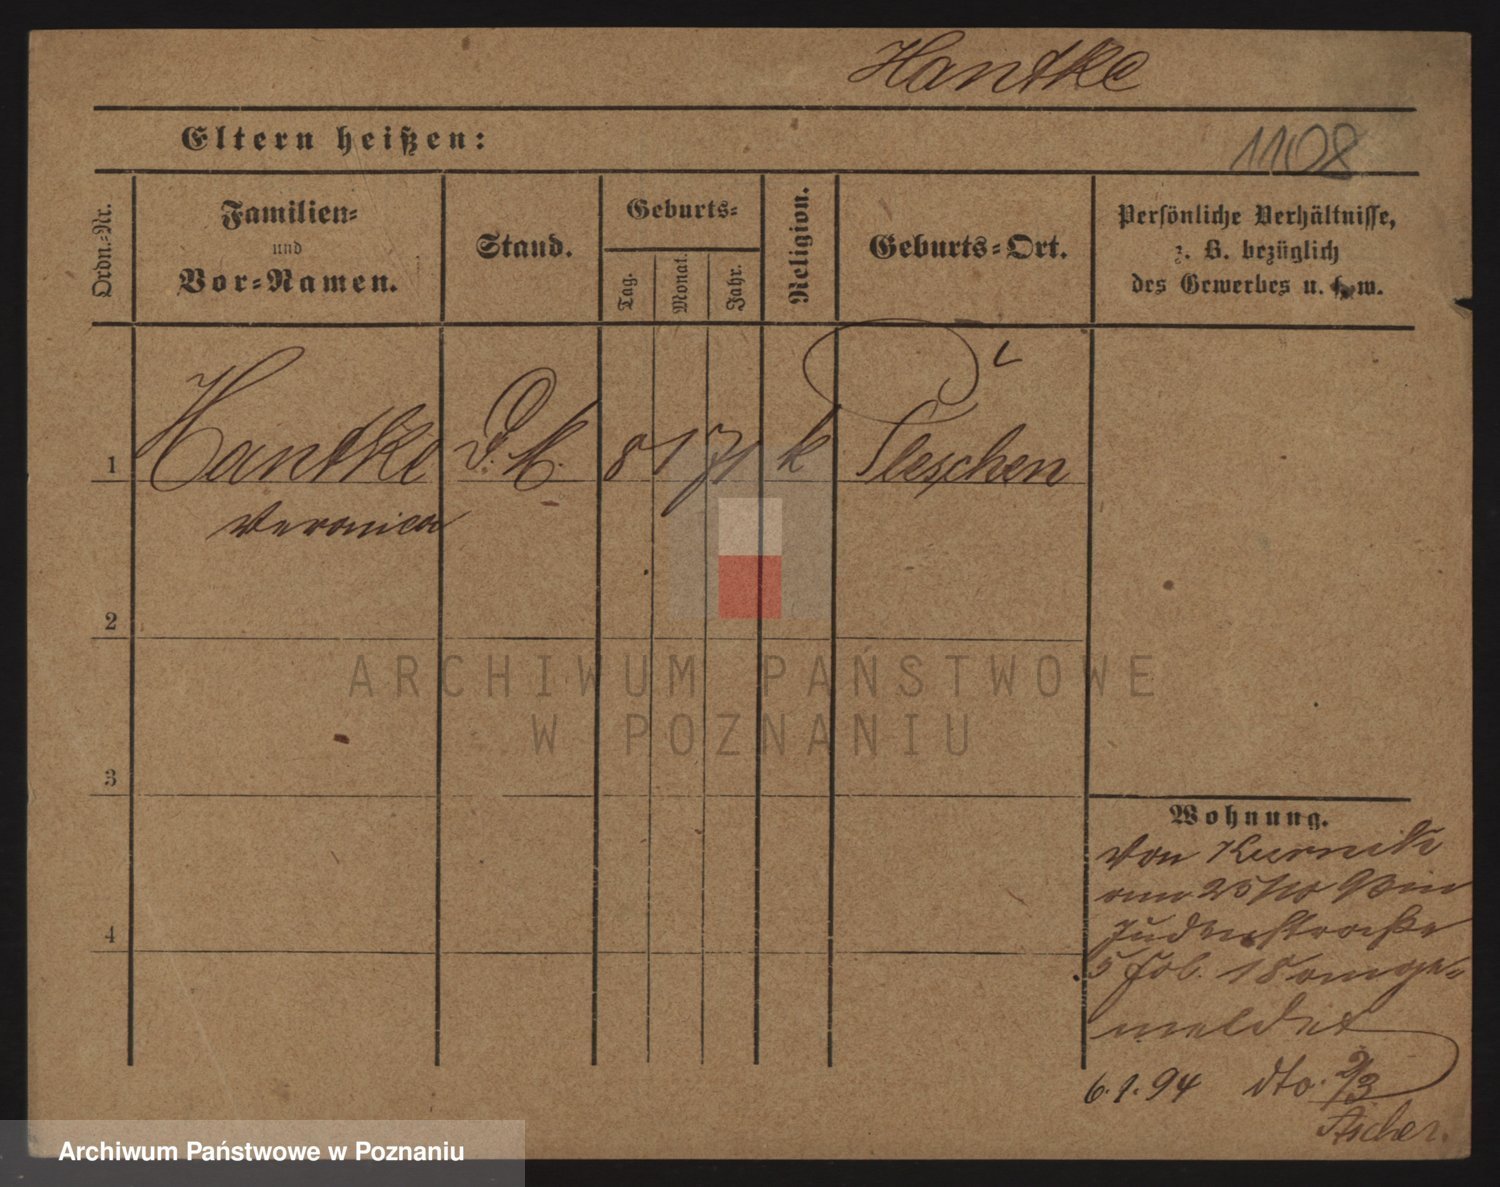 Hantke
Eltern heißen:
1108
Ordn.-Nr.
Familien-
und
Vor-Namen.
Stand.
Geburts-
Tag.
Monat.
Jahr.
Religion.
Geburts-Ort.
Persönliche Verhältnisse,
z. B. bezüglich
des Gewerbes u. s. w.
1
Hantke
D. M.
8 1 71
k
Pleschen
Veronica
2
ARCHIWUM PAŃSTWOWE
W POZNANIU
3
Wohnung.
Von Kurnik
am 25/10 93 in
Judenstraße
5 Job. 18 ange-
meldet
4
6.1.94 dto. 9/3
Fischer.
Archiwum Państwowe w Poznaniu